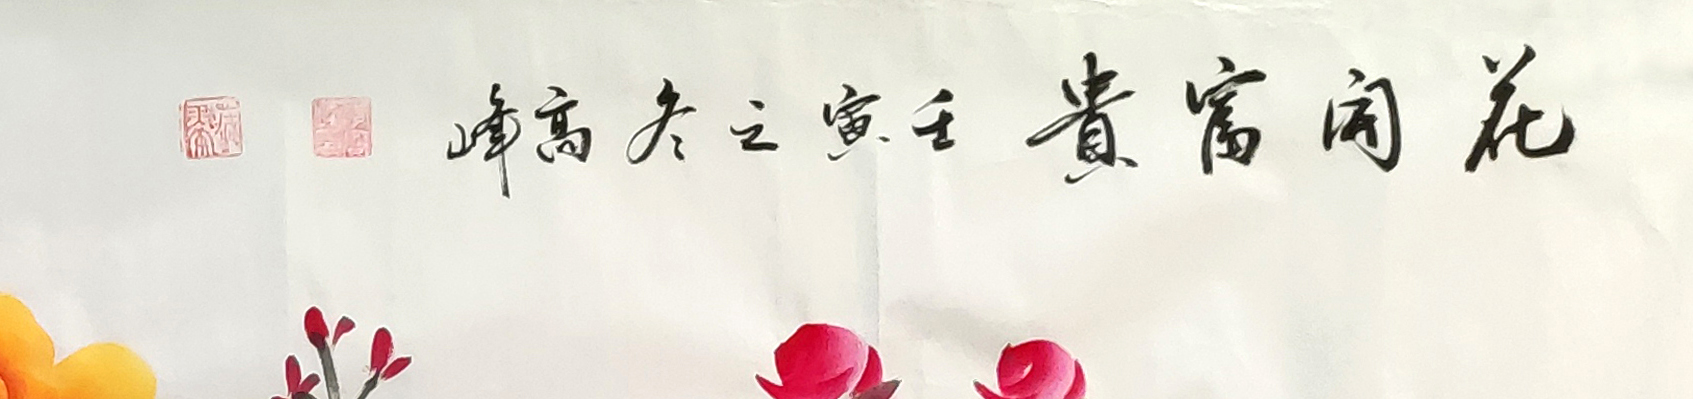 花開富貴 壬寅之冬 高峰